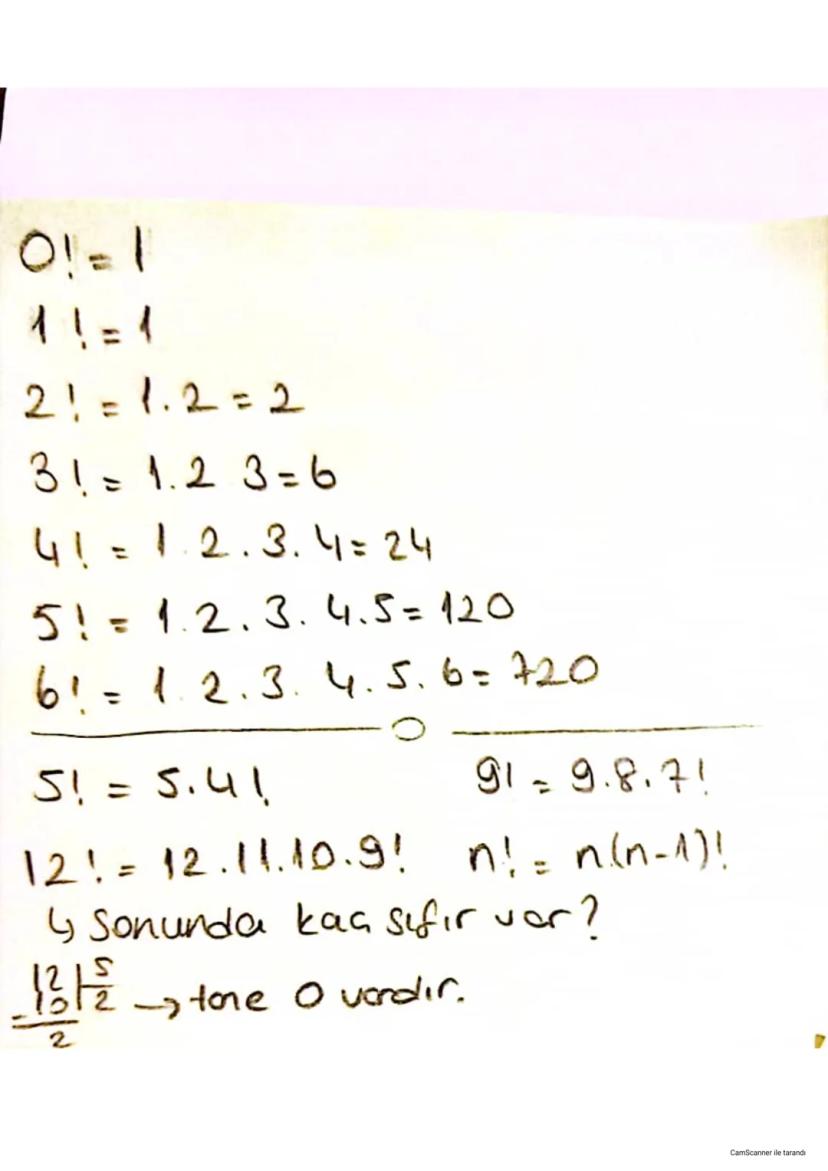 0! = 1
1! = 1
2! = 1.2 = 2
3! = 1.2 3 = 6
4! = 1 2.3.4 = 24
5! = 1.2.3.4.5 = 120
6! = 1 2.3.4.5.6 = 720
5! = 5.4! 9! = 9.8.7!
12! = 12.11.10.9! n! = n(n-1)!
↳ Sonunda kaç sıfır var?
12 | 5
- 10 | 2 → tane 0 vardır.
2
CamScanner ile tarandı